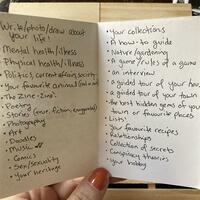 Write/photo/draw about
your life!
• Mental health/illness
• Physical health/illness
• Politics, current affairs, society
• Your favourite animal
• The Zine-Zine!
• Poetry
• Stories (true, fiction, exaggerated)
• Photography
• Art
• Doodles
• Music
• Comics
• Sex/sexuality
• Your heritage
• Your collections
• A how-to guide
• Nature/gardening
• A game/rules of a game
• an interview
• a guided tour of your house
• a guided tour of your town
• the best hidden gems of your
town or favourite places
• Lists!
• Your favourite recipes
• Relationships
• Collection of secrets
• Conspiracy theories
• your hobby